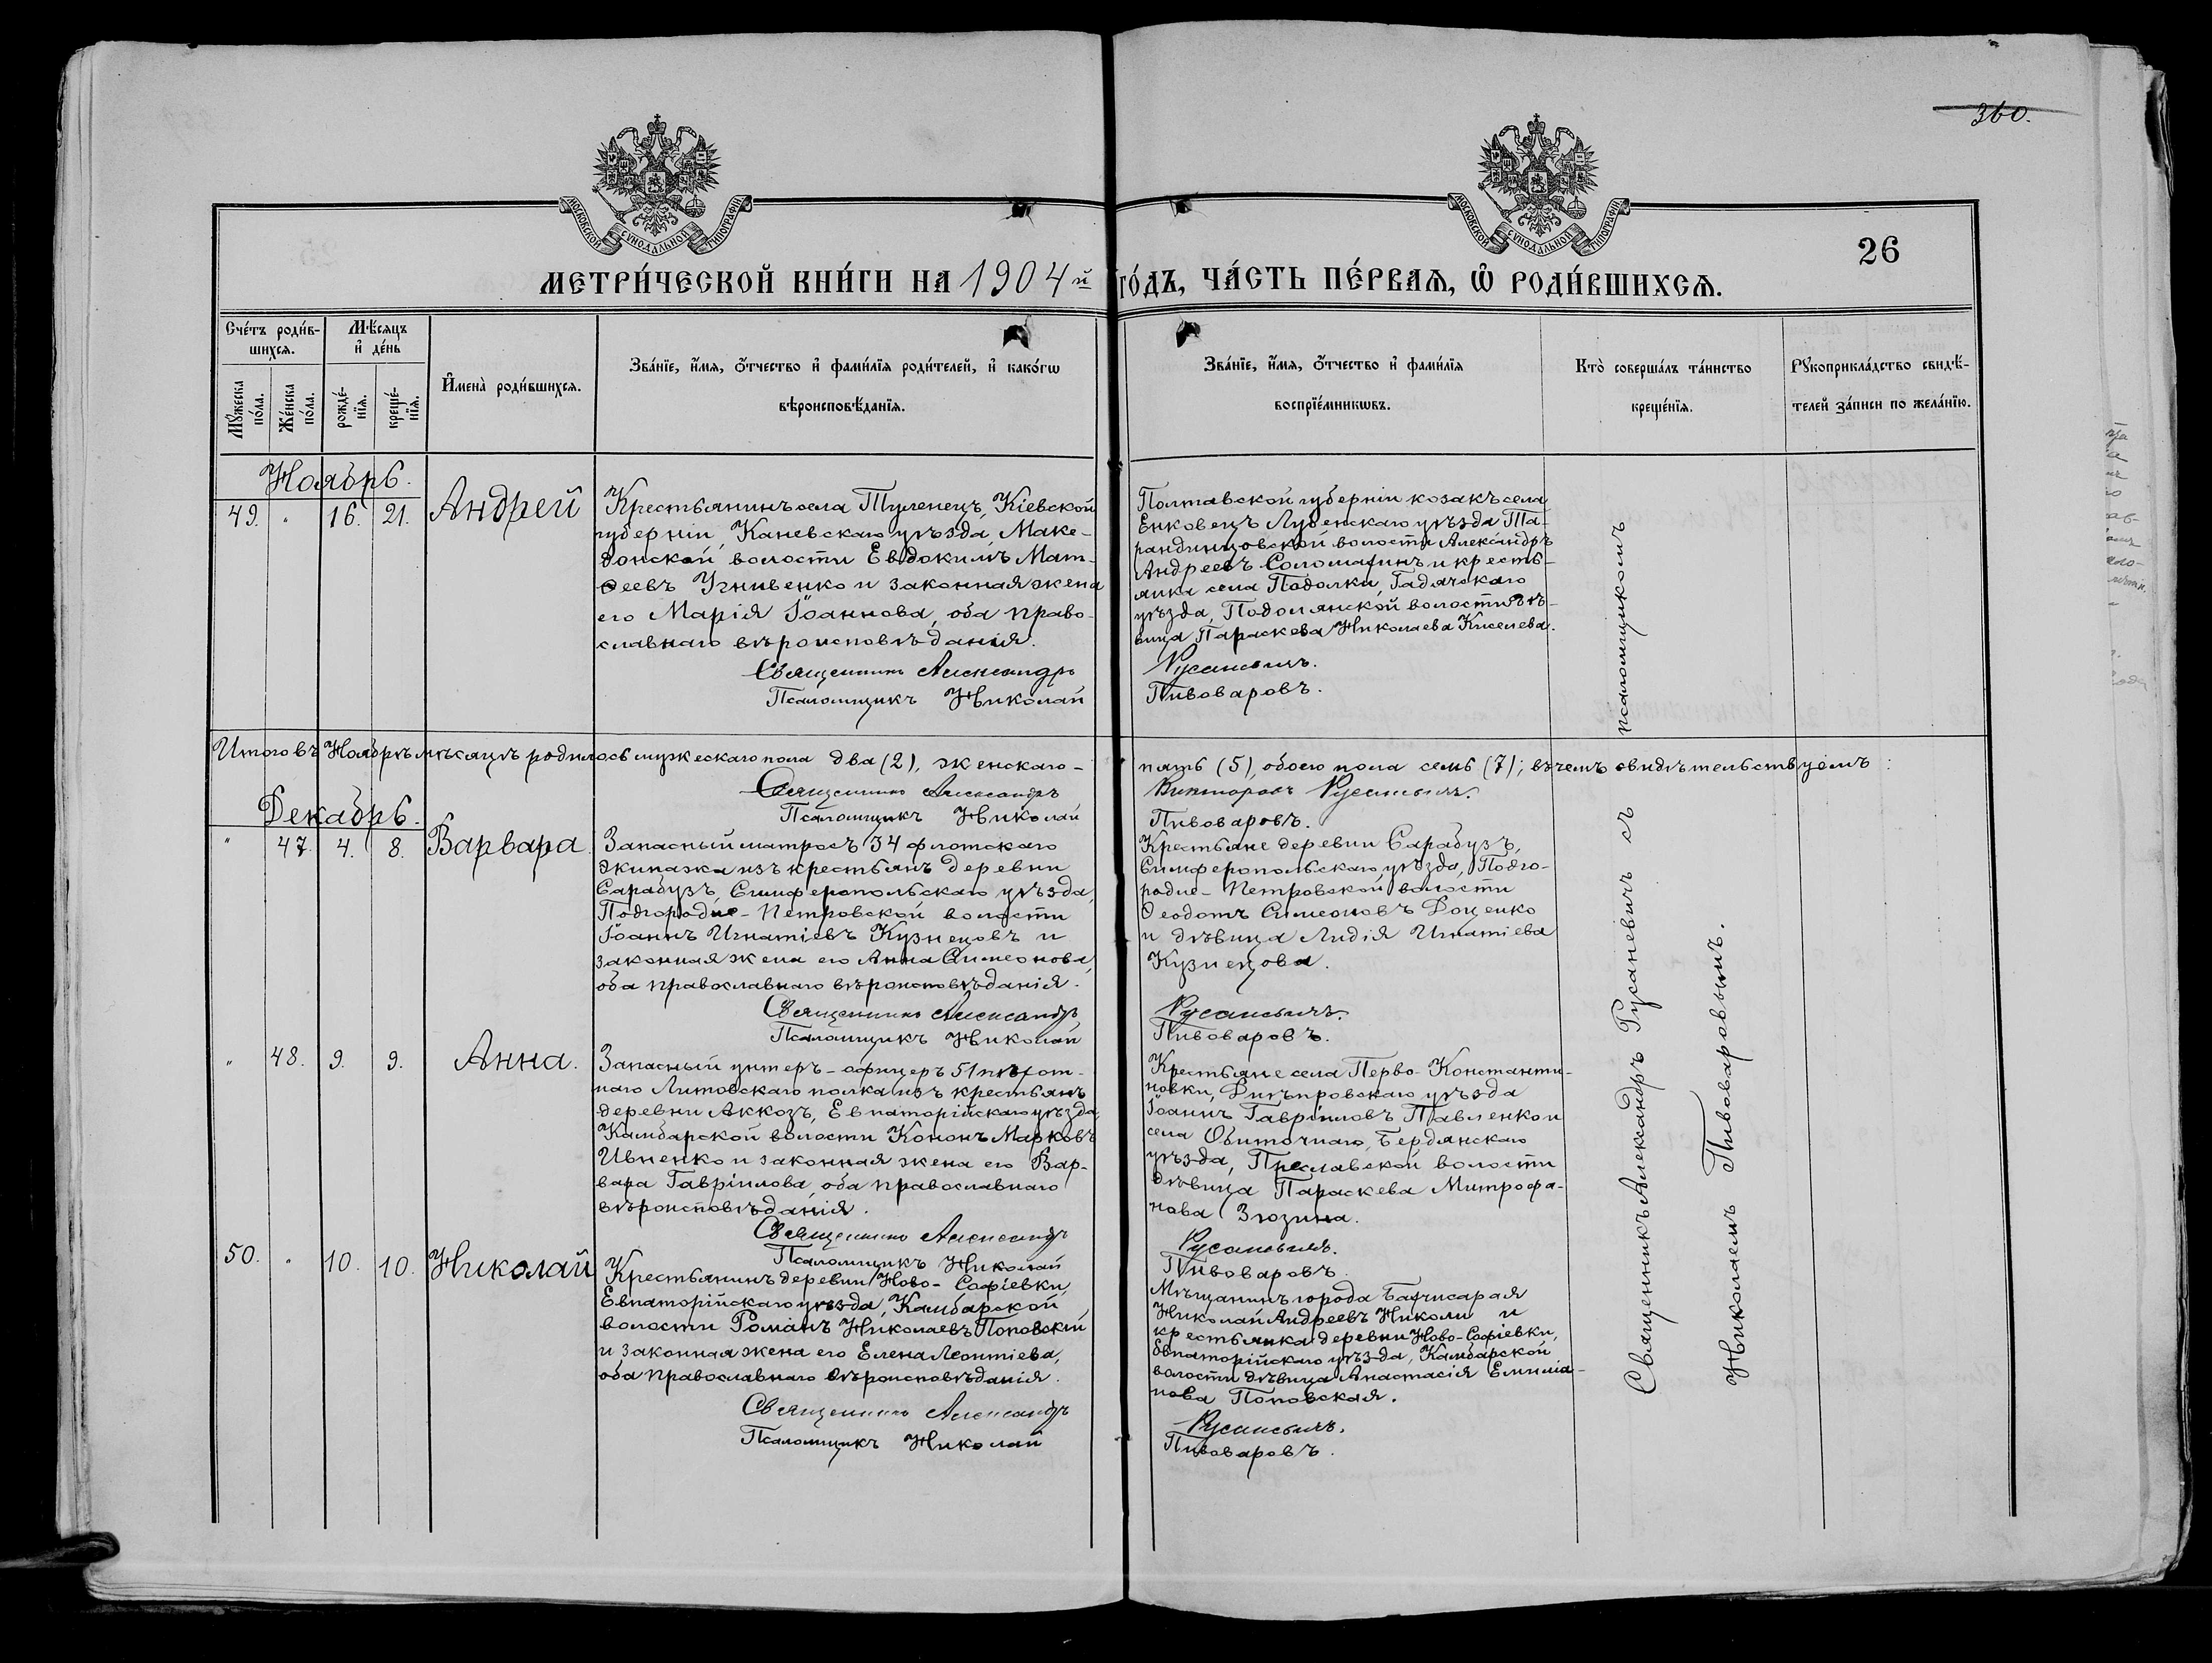 360.
МОСКОВСКОЙ СУНОДАЛЬНОЙ ТИПОГРАФІИ
МОСКОВСКОЙ СУНОДАЛЬНОЙ ТИПОГРАФІИ
26
МЕТРИ́ЧЕСКОЙ КНИ́ГИ НА 1904й ГО́ДЪ, ЧА́СТЬ ПЕ́РВАѦ, Ѡ҆ РОДИ́ВШИХСѦ.
Сче́тъ роди́в-
шихсѧ.
Мѣ́сѧцъ
и҆ де́нь
Мꙋ́жеска
по́ла.
Же́нска
по́ла.
рожде́-
нїѧ.
креще́-
нїѧ.
И҆мена̀ роди́вшихсѧ.
Зва́нїе, и҆́мѧ, ѻ҆́тчество и҆ фами́лїѧ роди́телей, и҆ како́гѡ
вѣроисповѣ́данїѧ.
Зва́нїе, и҆́мѧ, ѻ҆́тчество и҆ фами́лїѧ
воспрїе́мникѡвъ.
Кто̀ соверша́лъ та́инство
креще́нїѧ.
Рꙋкоприкла́дство свидѣ́-
телей за́писи по жела́нїю.
Ноябрь.
49. " 16. 21. Андрей
Крестьянинъ села Туленецъ, Кіевской
губерніи, Каневскаго уѣзда, Маке-
донской волости Евдокимъ Мат-
ѳеевъ Угнивенко и законная жена
его Марія Іоаннова, оба право-
славнаго вѣроисповѣданія.
Священникъ Александръ
Псаломщикъ Николай
Полтавской губерніи козакъ села
Енковецъ Лубенскаго уѣзда Та-
рандинцовской волости Александръ
Андреевъ Соломатинъ и кресть-
янка села Подолки, Гадячскаго
уѣзда, Подолянской волости дѣ-
вица Параскева Николаева Киселева.
Русаневичъ.
Пивоваровъ.
Итого въ Ноябрѣ мѣсяцѣ родилось мужескаго пола два (2), женскаго - пять (5), обоего пола семь (7); въ чемъ свидѣтельствуемъ:
Священникъ Александръ Викторовъ Русаневичъ.
Псаломщикъ Николай Пивоваровъ.
Декабрь.
" 47. 4. 8. Варвара
Запасный матросъ 34 флотскаго
экипажа изъ крестьянъ деревни
Сарабузъ, Симферопольскаго уѣзда,
Подгородне-Петровской волости
Іоаннъ Игнатіевъ Кузнецовъ и
законная жена его Анна Симеонова,
оба православнаго вѣроисповѣданія.
Священникъ Александръ
Псаломщикъ Николай
Крестьяне деревни Сарабузъ,
Симферопольскаго уѣзда, Подго-
родне-Петровской волости
Ѳеодотъ Симеоновъ Доценко
и дѣвица Лидія Игнатіева
Кузнецова.
Русаневичъ.
Пивоваровъ.
" 48. 9. 9. Анна.
Запасный унтеръ-офицеръ 51 пѣхот-
наго Литовскаго полка изъ крестьянъ
деревни Аккозъ, Евпаторійскаго уѣзда
Камбарской волости Кононъ Марковъ
Ивненко и законная жена его Вар-
вара Гавріилова, оба православнаго
вѣроисповѣданія.
Священникъ Александръ
Псаломщикъ Николай
Крестьяне села Перво-Константи-
новки, Днѣпровскаго уѣзда
Іоаннъ Гавріиловъ Павленко и
села Обиточнаго, Бердянскаго
уѣзда, Преславской волости
дѣвица Параскева Митрофа-
нова Зюзина.
Русаневичъ.
Пивоваровъ
50. " 10. 10. Николай
Крестьянинъ деревни Ново-Софіевки,
Евпаторійскаго уѣзда, Камбарской
волости Романъ Николаевъ Поповскій
и законная жена его Елена Леонтіева,
оба православнаго вѣроисповѣданія.
Священникъ Александръ
Псаломщикъ Николай
Мѣщанинъ города Бахчисарая
Николай Андреевъ Николи и
крестьянка деревни Ново-Софіевки,
Евпаторійскаго уѣзда, Камбарской
волости дѣвица Анастасія Емиліа-
нова Поповская.
Русаневичъ.
Пивоваровъ.
Священникъ Александръ Русаневичъ съ псаломщикомъ
Николаемъ Пивоваровымъ.